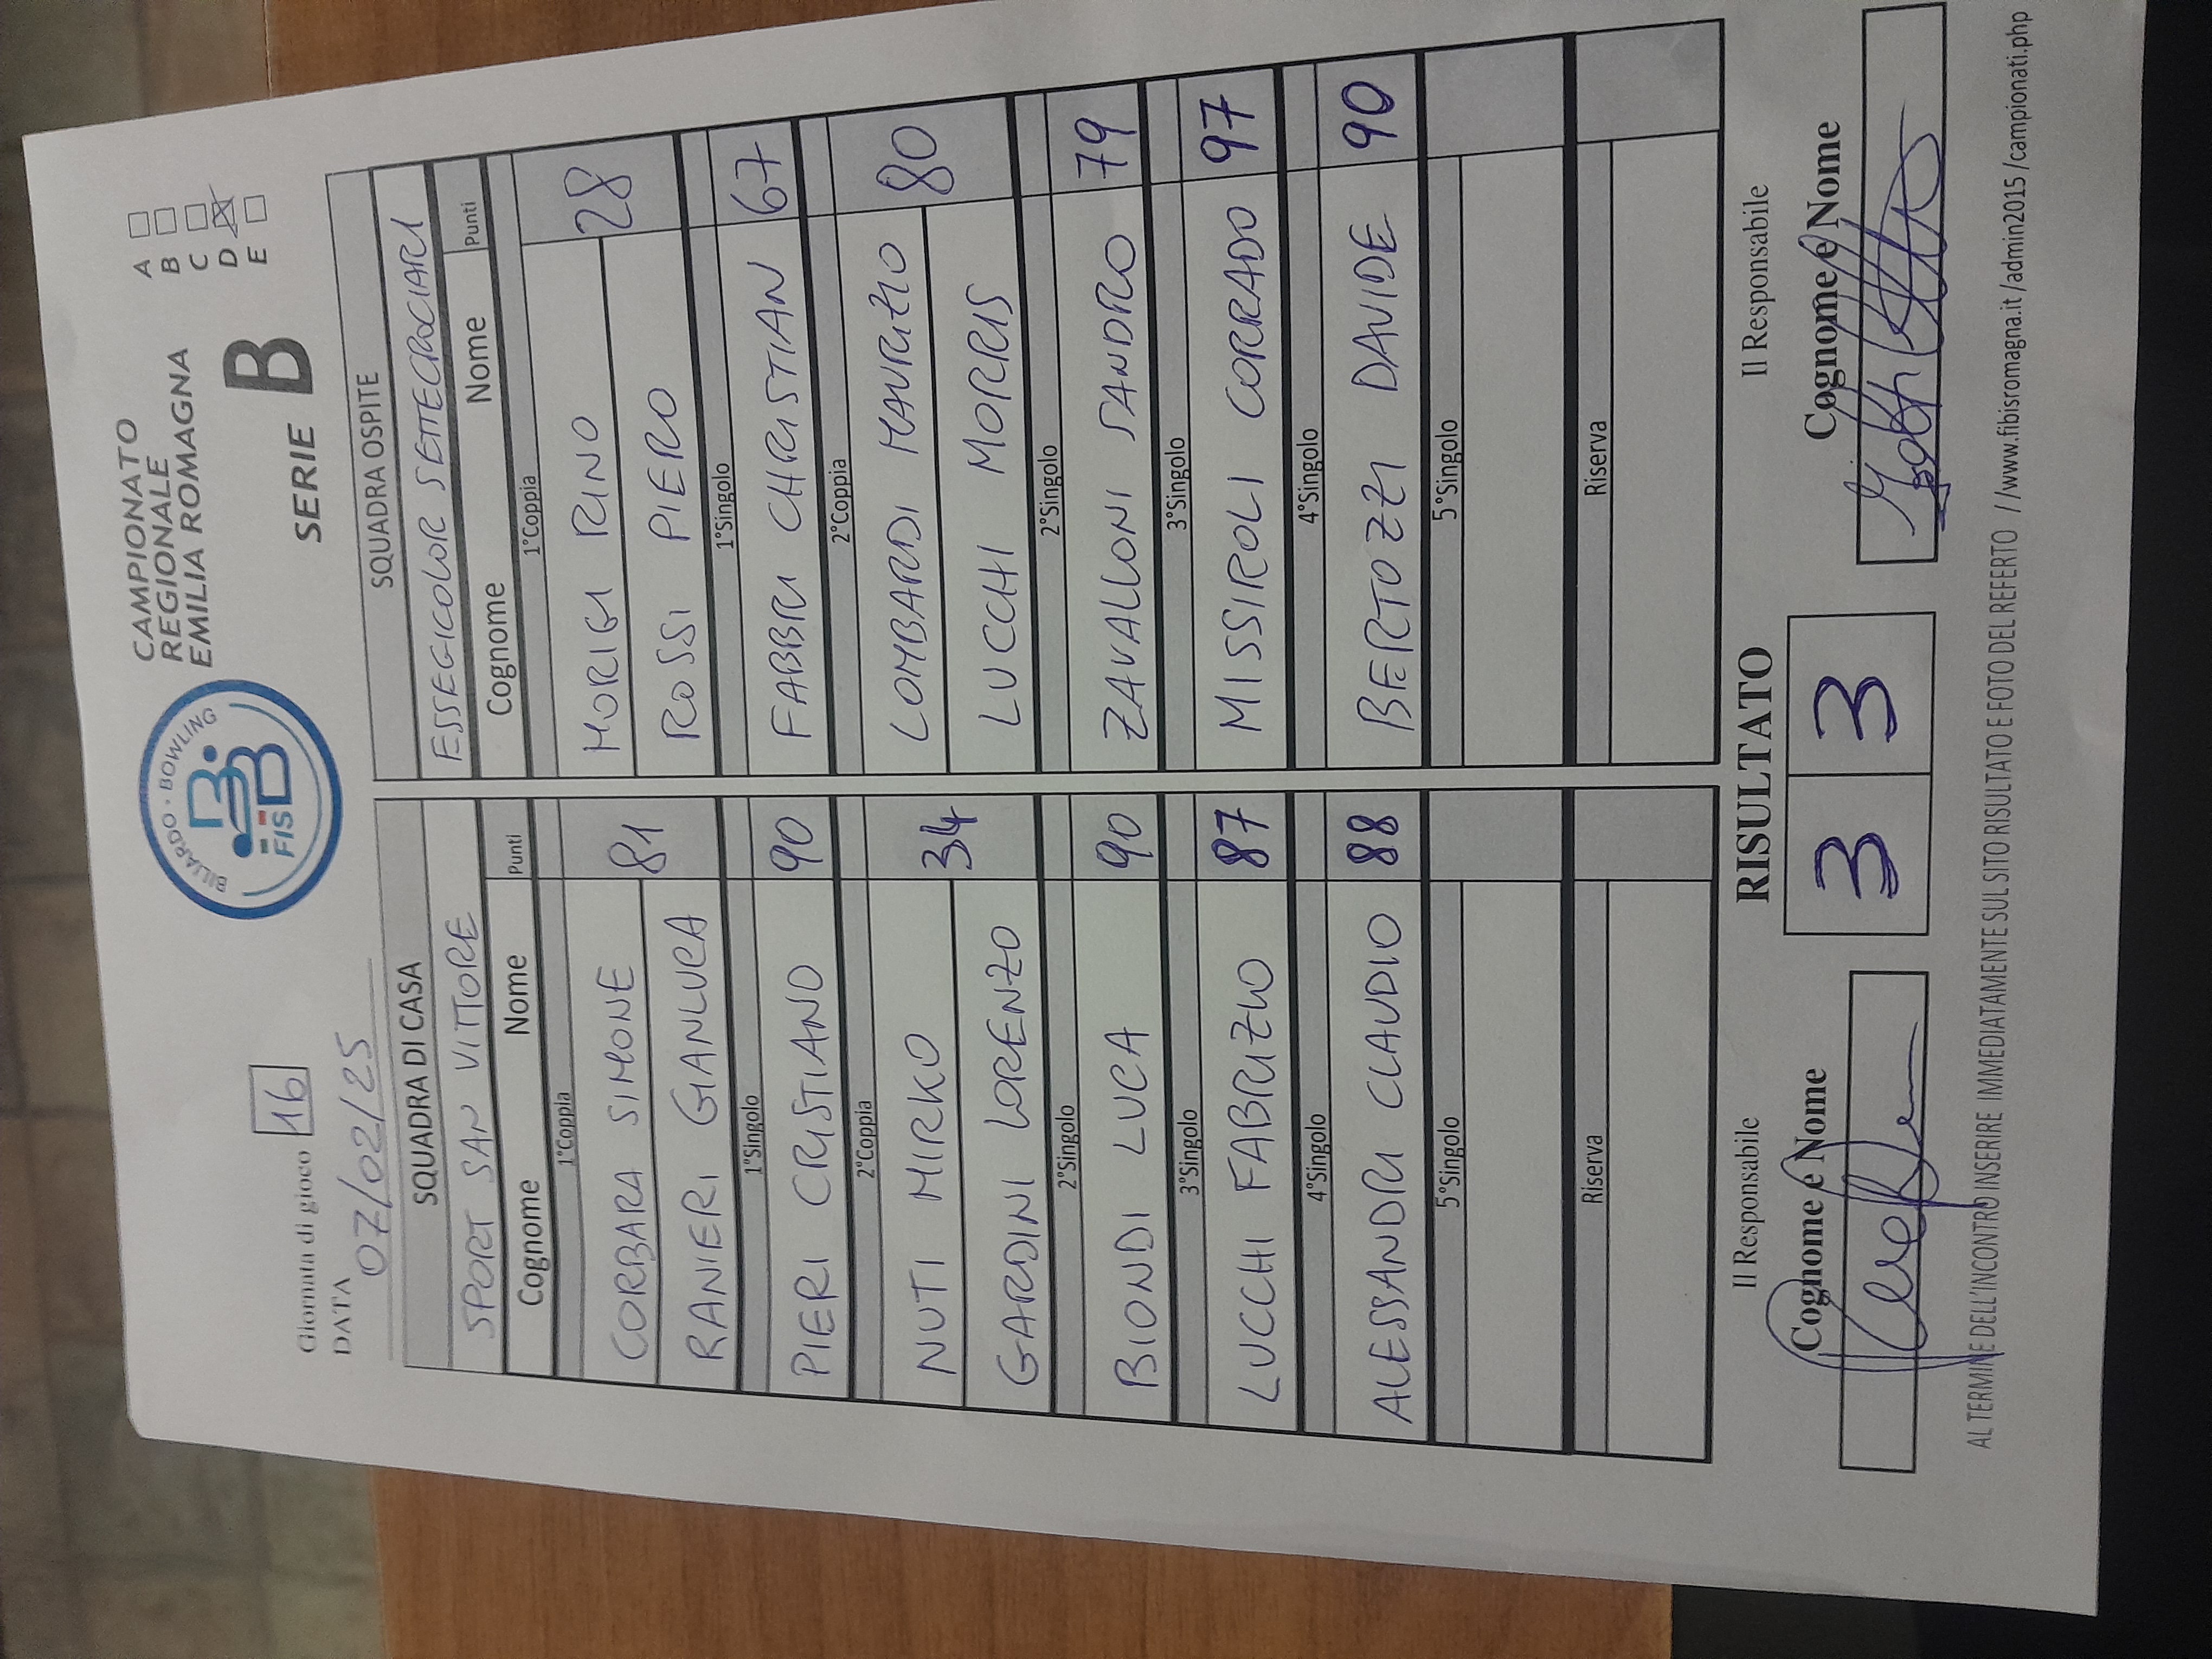 Giornata di gioco 16
DATA
07/02/25
BILIARDO · BOWLING
FISBB
CAMPIONATO
REGIONALE
EMILIA ROMAGNA
SERIE B
A
B
C
D
E
SQUADRA DI CASA
SPORT SAN VITTORE
Cognome Nome Punti
1°Coppia
CORBARA SIMONE 81
RANIERI GIANLUCA
1°Singolo
PIERI CRISTIANO 90
2°Coppia
NUTI MIRKO 34
GARDINI LORENZO
2°Singolo
BIONDI LUCA 90
3°Singolo
LUCCHI FABRIZIO 87
4°Singolo
ALESSANDRI CLAUDIO 88
5°Singolo
Riserva
SQUADRA OSPITE
ESSEGICOLOR SETTECROCIARI
Cognome Nome Punti
1°Coppia
MORIGI RINO 28
ROSSI PIERO
1°Singolo
FABBRI CHRISTIAN 67
2°Coppia
LOMBARDI MAURIZIO 80
LUCCHI MORRIS
2°Singolo
ZAVALLONI SANDRO 79
3°Singolo
MISSIROLI CORRADO 97
4°Singolo
BERTOZZI DAVIDE 90
5°Singolo
Riserva
Il Responsabile
Cognome e Nome
RISULTATO
3 3
Il Responsabile
Cognome e Nome
AL TERMINE DELL'INCONTRO INSERIRE IMMEDIATAMENTE SUL SITO RISULTATO E FOTO DEL REFERTO //www.fibisromagna.it/admin2015/campionati.php